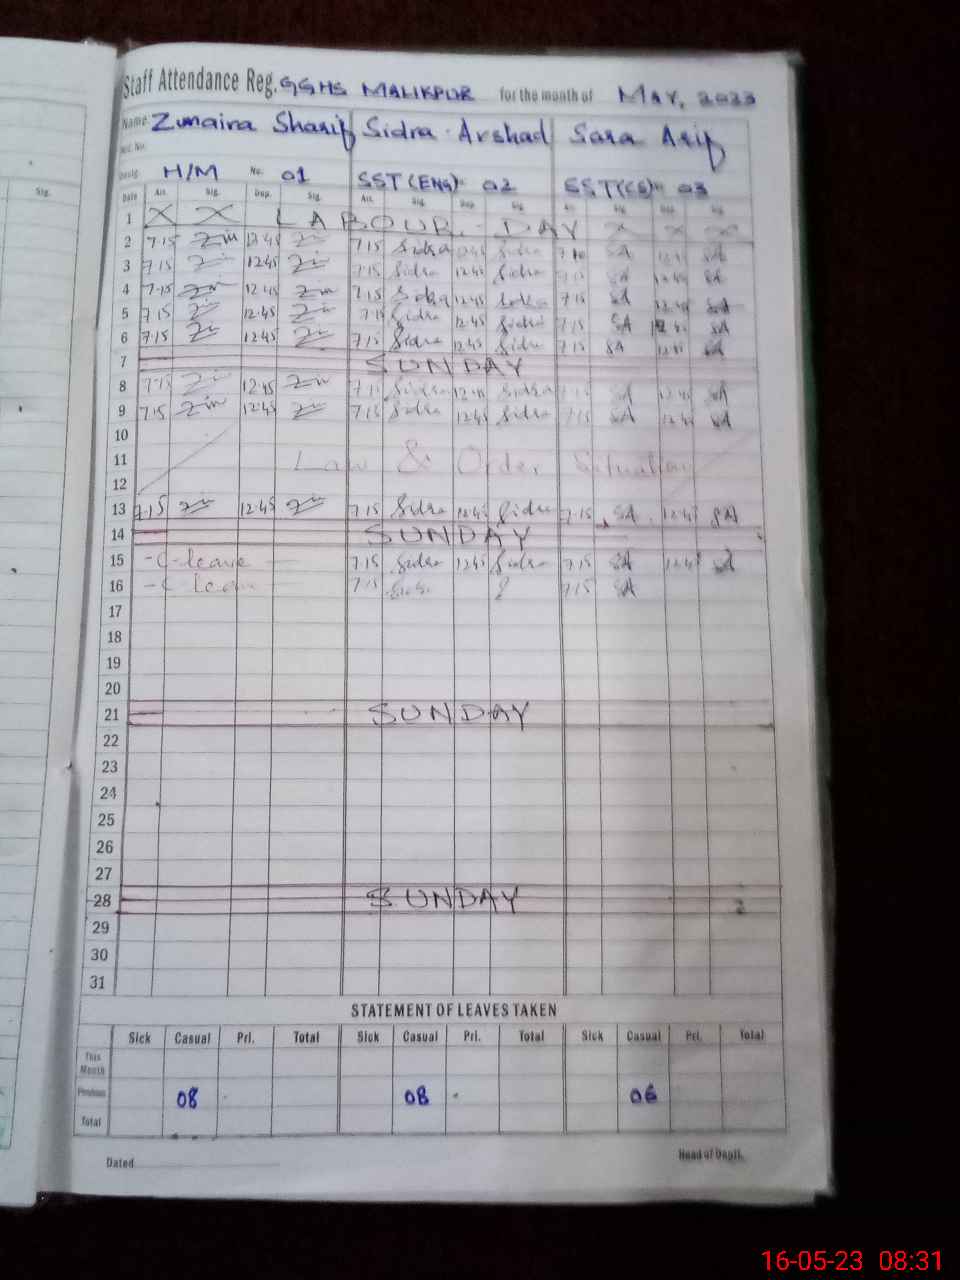 Sig.
Staff Attendance Reg. GGHS MALIKPUR for the month of MAY, 2023
Name: Zunaira Sharif Sidra Arshad Sara Arif
Desig. H/M No. 01 SST (ENG) 02 SST (CS) 03
Date Arr. Sig. Dep. Sig. Arr. Sig. Dep. Sig. Arr. Sig. Dep. Sig.
1 X X LABOUR DAY X X X
2 7.15 Zin 12.45 Zin 7.15 Sidra 12.45 Sidra 7.10 SA 12.45 SA
3 7.15 Zin 12.45 Zin 7.15 Sidra 12.45 Sidra 7.15 SA 12.45 SA
4 7.15 Zin 12.45 Zin 7.15 Sidra 12.45 Sidra 7.15 SA 12.45 SA
5 7.15 Zin 12.45 Zin 7.15 Sidra 12.45 Sidra 7.15 SA 12.45 SA
6 7.15 Zin 12.45 Zin 7.15 Sidra 12.45 Sidra 7.15 SA 12.45 SA
7 SUNDAY
8 7.15 Zin 12.45 Zin 7.15 Sidra 12.45 Sidra 7.15 SA 12.45 SA
9 7.15 Zin 12.45 Zin 7.15 Sidra 12.45 Sidra 7.15 SA 12.45 SA
10
11 Law & Order Situation
12
13 7.15 Zin 12.45 Zin 7.15 Sidra 12.45 Sidra 7.15 SA 12.45 SA
14 SUNDAY
15 - C-leave - 7.15 Sidra 12.45 Sidra 7.15 SA 12.45 SA
16 - C leave - 7.15 7.15 SA
17
18
19
20
21 SUNDAY
22
23
24
25
26
27
28 SUNDAY
29
30
31
STATEMENT OF LEAVES TAKEN
Sick Casual Pri. Total Sick Casual Pri. Total Sick Casual Pri. Total
This Month
Previous 08 08 06
Total
Dated Head of Deptt.
16-05-23 08:31